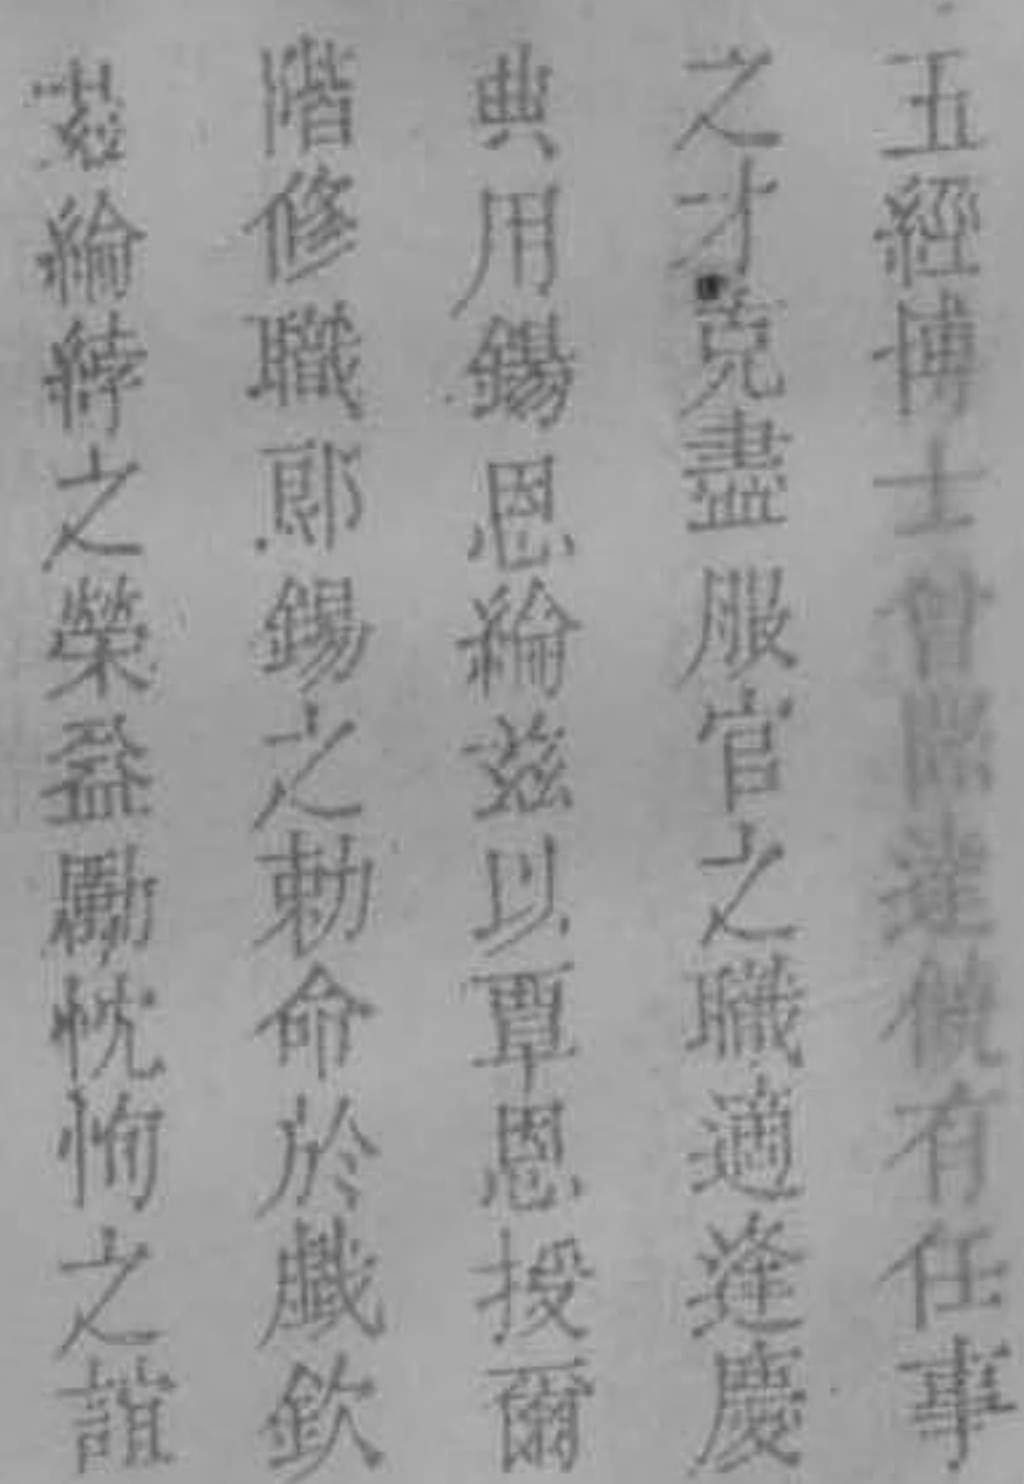 五經博士曾陞達既有任事
之才克盡服官之職適逢慶
典用錫恩綸茲以覃恩授爾
階修職郎錫之勅命於戲欽
茲綸綍之榮益勵忱恂之誼